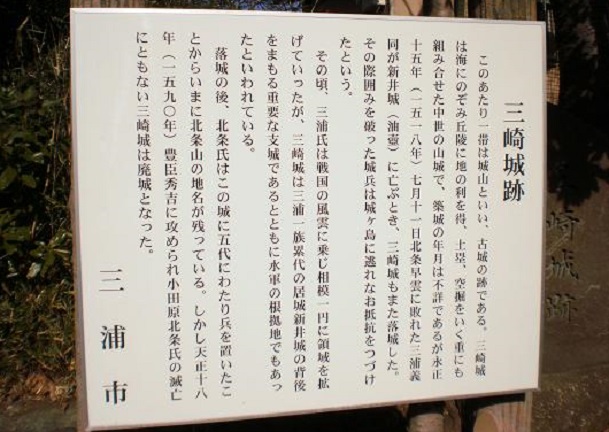 三崎城跡
このあたり一帯は城山といい、古城の跡である。三崎城
は海にのぞみ丘陵に地の利を得、土塁、空掘をいく重にも
組み合せた中世の山城で、築城の年月は不詳であるが永正
十五年（一五一八年）七月十一日北条早雲に敗れた三浦義
同が新井城（油壷）に亡ぶとき、三崎城もまた落城した。
その際囲みを破った城兵は城ヶ島に逃れなお抵抗をつづけ
たという。
その頃、三浦氏は戦国の風雲に乗じ相模一円に領域を拡
げていったが、三崎城は三浦一族累代の居城新井城の背後
をまもる重要な支城であるとともに水軍の根拠地でもあっ
たといわれている。
落城の後、北条氏はこの城に五代にわたり兵を置いたこ
とからいまに北条山の地名が残っている。しかし天正十八
年（一五九〇年）豊臣秀吉に攻められ小田原北条氏の滅亡
にともない三崎城は廃城となった。
三浦市
崎城跡